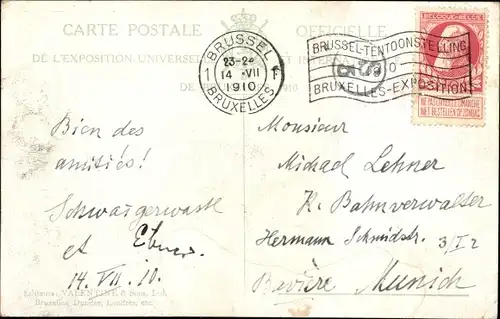 CARTE POSTALE OFFICIELLE
DE L'EXPOSITION UNIVERSELLE ET INTERNA
DE 1910
BRUSSEL
1 23-24 1F
14 -VII
1910
BRUXELLES
BRUSSEL-TENTOONSTELLING
BRUXELLES-EXPOSITION
BELGIQUE-BELGIË
NE PAS LIVRER LE DIMANCHE
NIET BESTELLEN OP ZONDAG
Bien des
amitiés!
et
14. VII. 10.
Monsieur
Michael Lehner
K. Bahnverwalter
Hermann Schmidstr. 3/I 2
Bavière Munich
Editeurs: VALENTINE & Sons, Ltd.
Bruxelles, Dundee, Londres, etc.